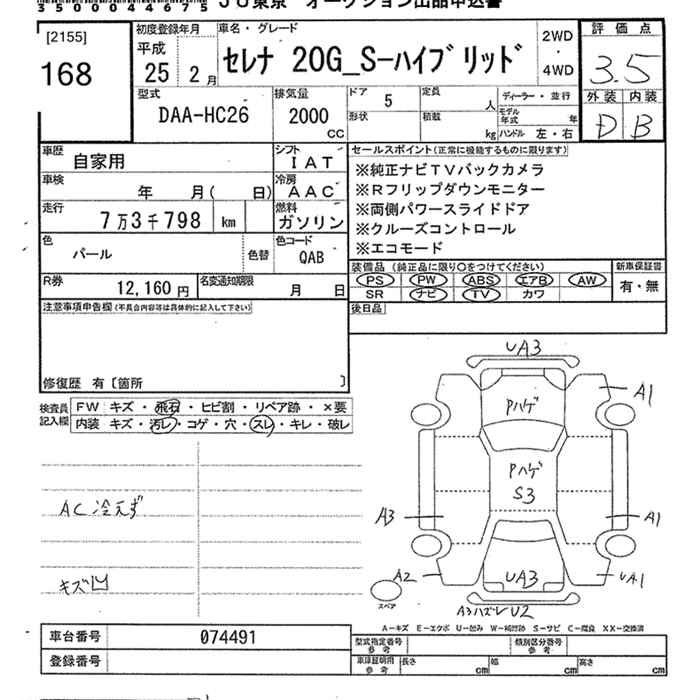 35000446​75 JU東京 オークション出品申込書
[2155]
168
初度登録年月
平成
25 2月
車名・グレード
セレナ 20G_S-ハイブリッド
2WD
・
4WD
評価点
3.5
外装 内装
D B
型式
DAA-HC26
排気量
2000
CC
ドア
5
形状
定員
人
積載
kg
ディーラー・並行
モデル年式 年
ハンドル 左・右
車歴
自家用
シフト
IAT
車検
年 月( 日)
冷房
AAC
走行
7万3千798 km
燃料
ガソリン
色
パール
色替
色コード
QAB
R券
12,160円
名変通知期限
月 日
セールスポイント(正常に機能するものに限ります)
※純正ナビTVバックカメラ
※Rフリップダウンモニター
※両側パワースライドドア
※クルーズコントロール
※エコモード
装備品(純正品に限り○をつけてください)
PS PW ABS エアB AW
SR ナビ TV カワ
新車保証書
有・無
後日品
注意事項申告欄(不具合内容等は具体的に記入して下さい)
修復歴 有〔箇所 〕
検査員
記入欄
FW キズ・飛石・ヒビ割・リペア跡・×要
内装 キズ・汚レ・コゲ・穴・スレ・キレ・破レ
AC 冷えず
キズ凹
UA3
A1
Pハゲ
Pハゲ
S3
A3
A1
A2
UA3
UA1
A3ハズレU2
スペア
A-キズ E-エクボ U-凹み W-補修跡 S-サビ C-腐食 XX-交換済
車台番号 074491
登録番号
型式指定番号
参考
類別区分番号
参考
車庫証明用
参考
長さ cm 幅 cm 高さ cm